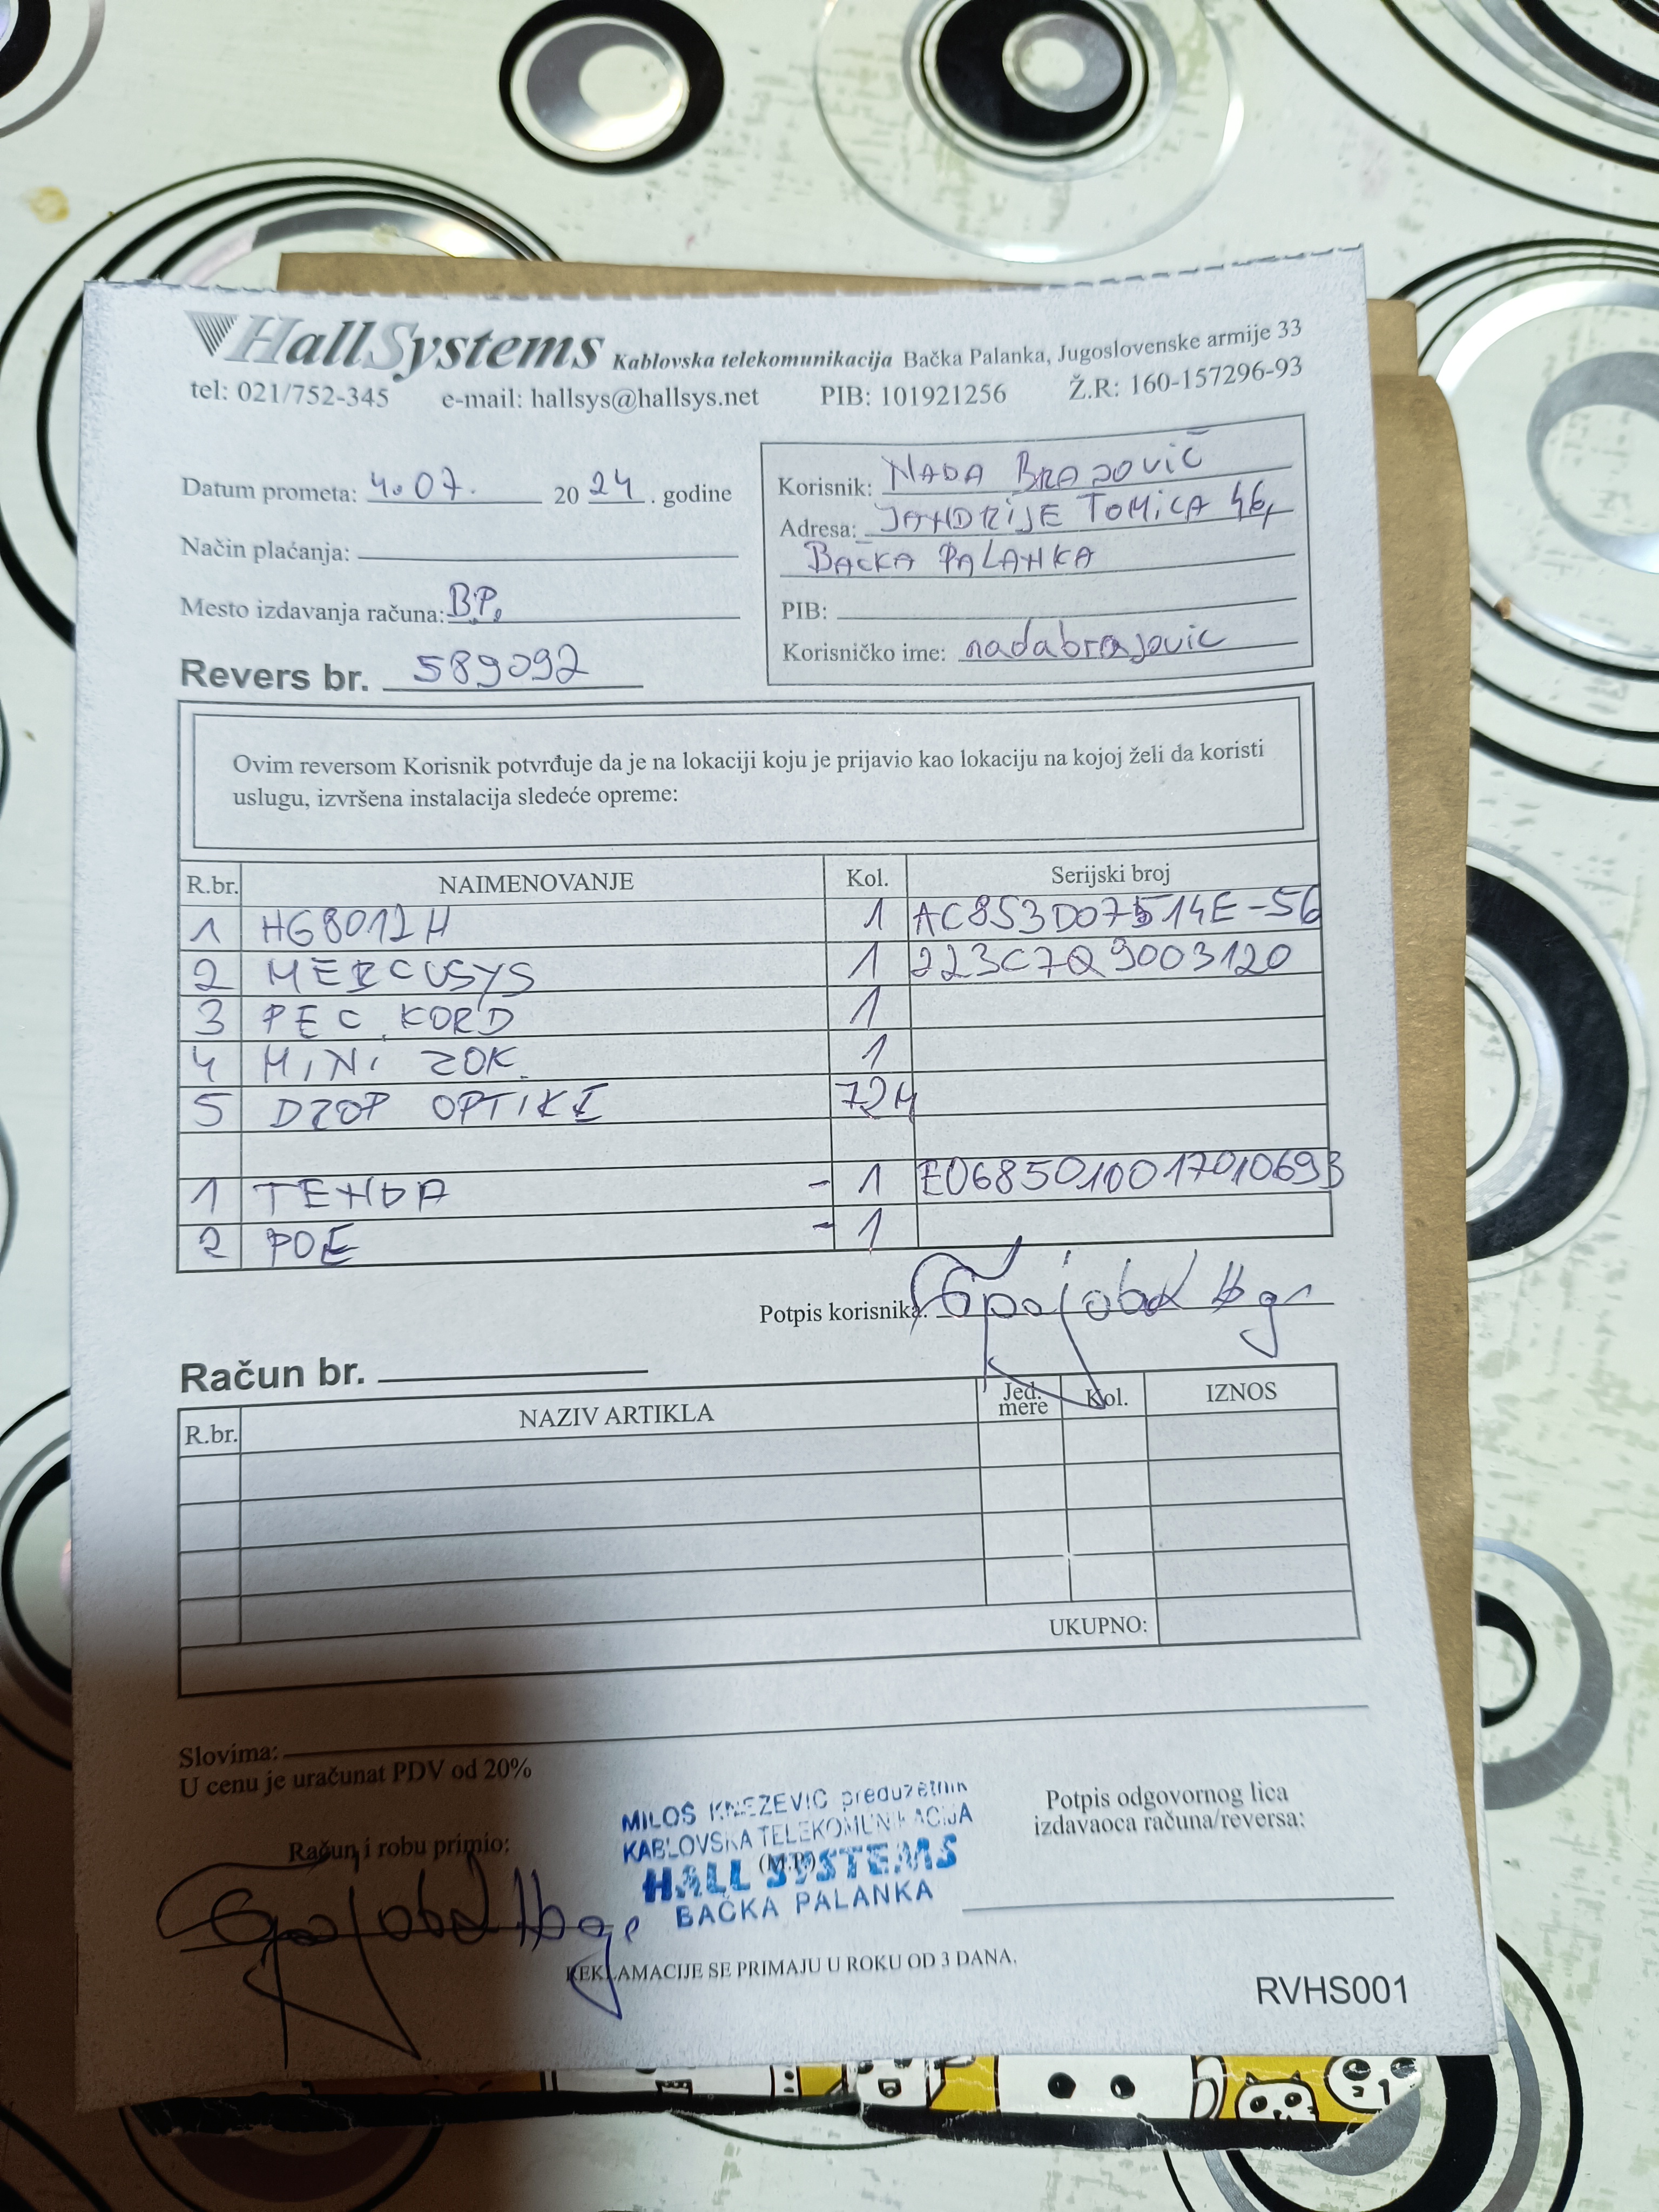 HallSystems Kablovska telekomunikacija Bačka Palanka, Jugoslovenske armije 33
tel: 021/752-345 e-mail: hallsys@hallsys.net PIB: 101921256 Ž.R: 160-157296-93
Datum prometa: 4.07. 2024. godine
Način plaćanja:
Mesto izdavanja računa: B.P.
Revers br. 589092
Korisnik: NADA BRAJOVIĆ
Adresa: JANDRIJE TOMIĆA 46,
BAČKA PALANKA
PIB:
Korisničko ime: nadabrajovic
Ovim reversom Korisnik potvrđuje da je na lokaciji koju je prijavio kao lokaciju na kojoj želi da koristi
uslugu, izvršena instalacija sledeće opreme:
R.br. NAIMENOVANJE Kol. Serijski broj
1 HG8012H 1 AC853D07514E-56
2 MERCUSYS 1 223C7Q9003120
3 PEC KORD 1
4 MINI ZOK. 1
5 DROP OPTIKI 72M
1 TENDA - 1 E0685010017010693
2 POE - 1
Potpis korisnika:
Račun br.
R.br. NAZIV ARTIKLA Jed. mere Kol. IZNOS
UKUPNO:
Slovima:
U cenu je uračunat PDV od 20%
Račun i robu primio:
MILOŠ KNEŽEVIĆ preduzetnik
KABLOVSKA TELEKOMUNIKACIJA
(M.P.)
HALL SYSTEMS
BAČKA PALANKA
Potpis odgovornog lica
izdavaoca računa/reversa:
REKLAMACIJE SE PRIMAJU U ROKU OD 3 DANA.
RVHS001